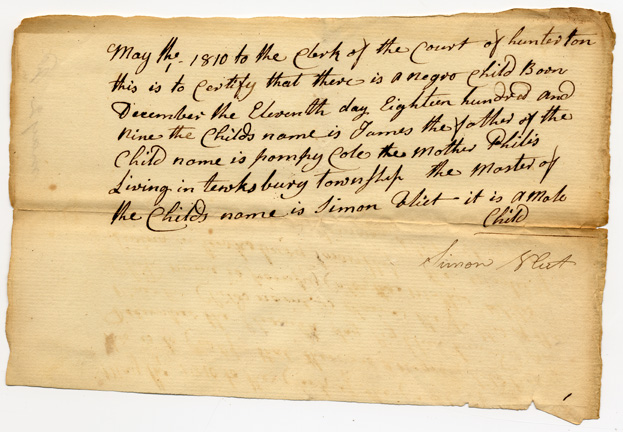 May the, 1810 to the Clerk of the Court of hunterton
this is to Certify that there is a negro Child Born
December the Eleventh day Eighteen hundred and
Nine the Childs name is James the father of the
Child name is pompy Cole the Mother Philis
Living in tewksbury township the Master of
the Childs name is Simon Vliet it is a male
Child
Simon Vliet